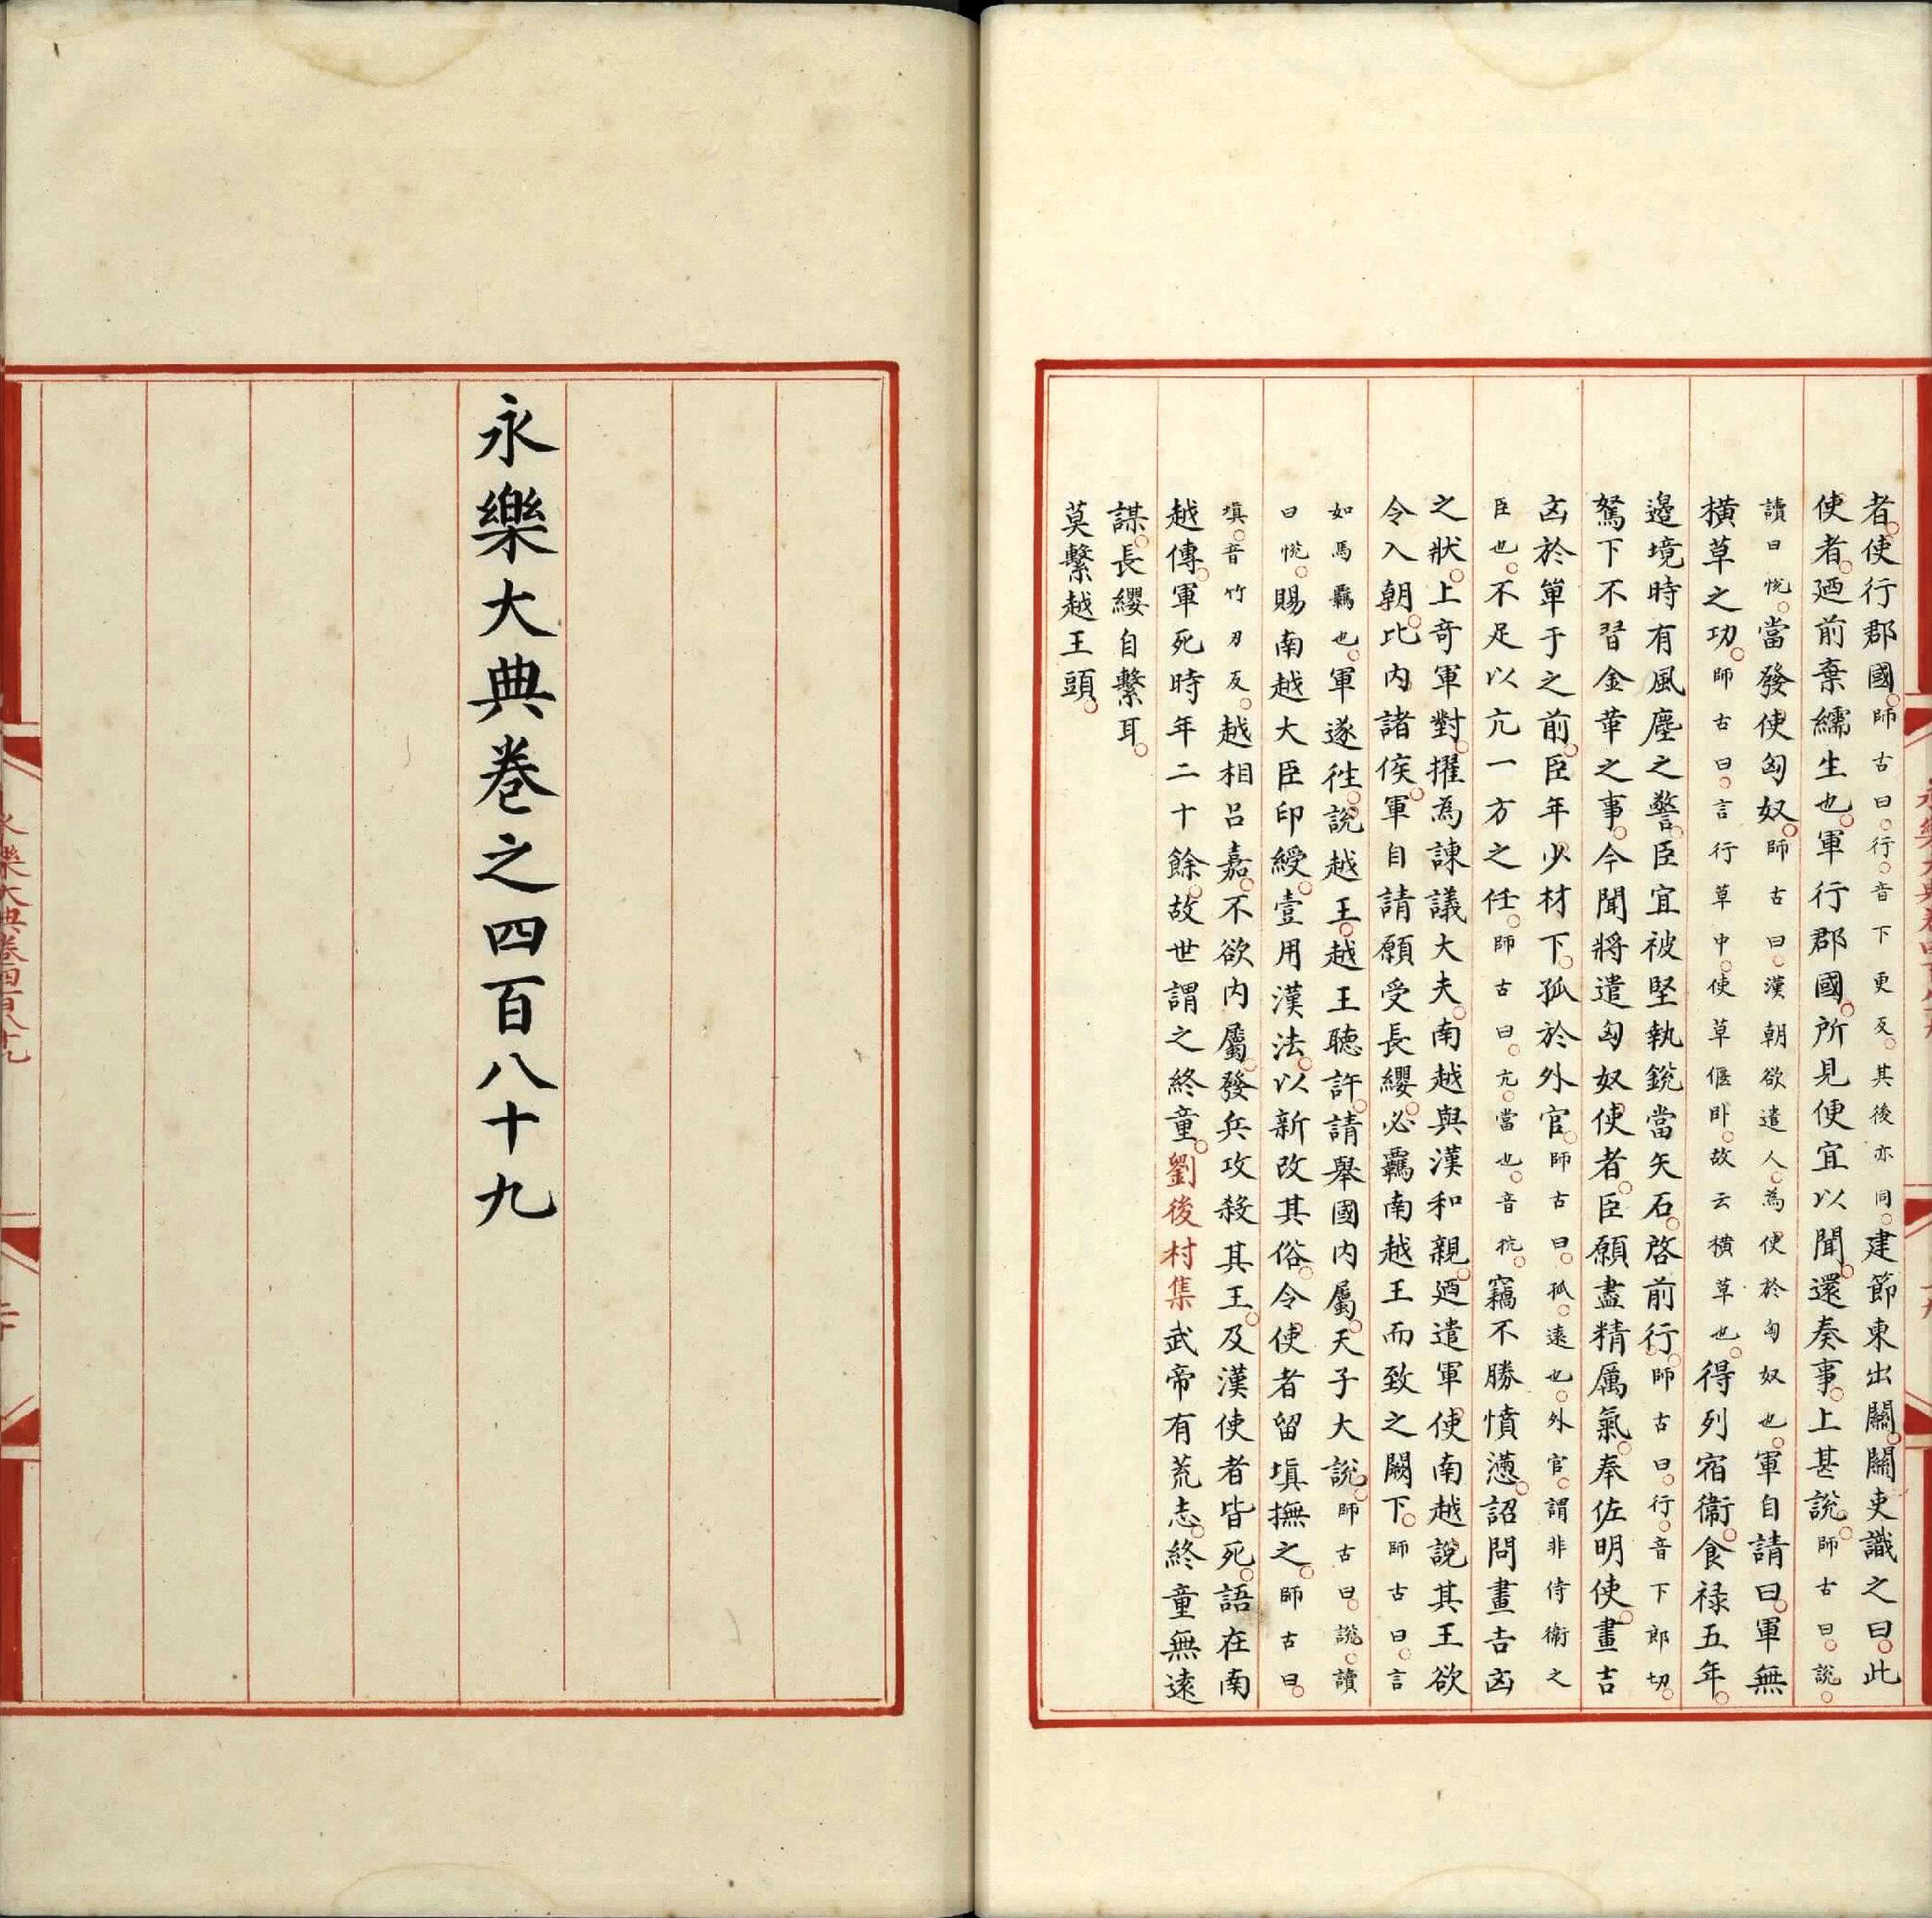 者使行郡國師古曰行音下更反其後亦同建節東出關關吏識之曰此
使者廼前棄繻生也軍行郡國所見便宜以聞還奏事上甚說師古曰說
讀曰悅當發使匈奴師古曰漢朝欲遣人為使於匈奴也軍自請曰軍無
橫草之功師古曰言行草中使草偃卧故云橫草也得列宿衞食祿五年
邊境時有風塵之警臣宜被堅執銳當矢石啓前行師古曰行音下郎切
駑下不習金革之事今聞將遣匈奴使者臣願盡精厲氣奉佐明使畫吉
凶於單于之前臣年少材下孤於外官師古曰孤遠也外官謂非侍衞之
臣也不足以亢一方之任師古曰亢當也音抗竊不勝憤懣詔問畫吉凶
之狀上奇軍對擢為諫議大夫南越與漢和親廼遣軍使南越說其王欲
令入朝比內諸侯軍自請願受長纓必羈南越王而致之闕下師古曰言
如馬羈也軍遂往說越王越王聽許請舉國內屬天子大說師古曰說讀
曰悅賜南越大臣印綬壹用漢法以新改其俗令使者留填撫之師古曰
填音竹刃反越相呂嘉不欲內屬發兵攻殺其王及漢使者皆死語在南
越傳軍死時年二十餘故世謂之終童劉後村集武帝有荒志終童無遠
謀長纓自繫耳
莫繫越王頭
永樂大典卷之四百八十九
永樂大典卷四百八十九